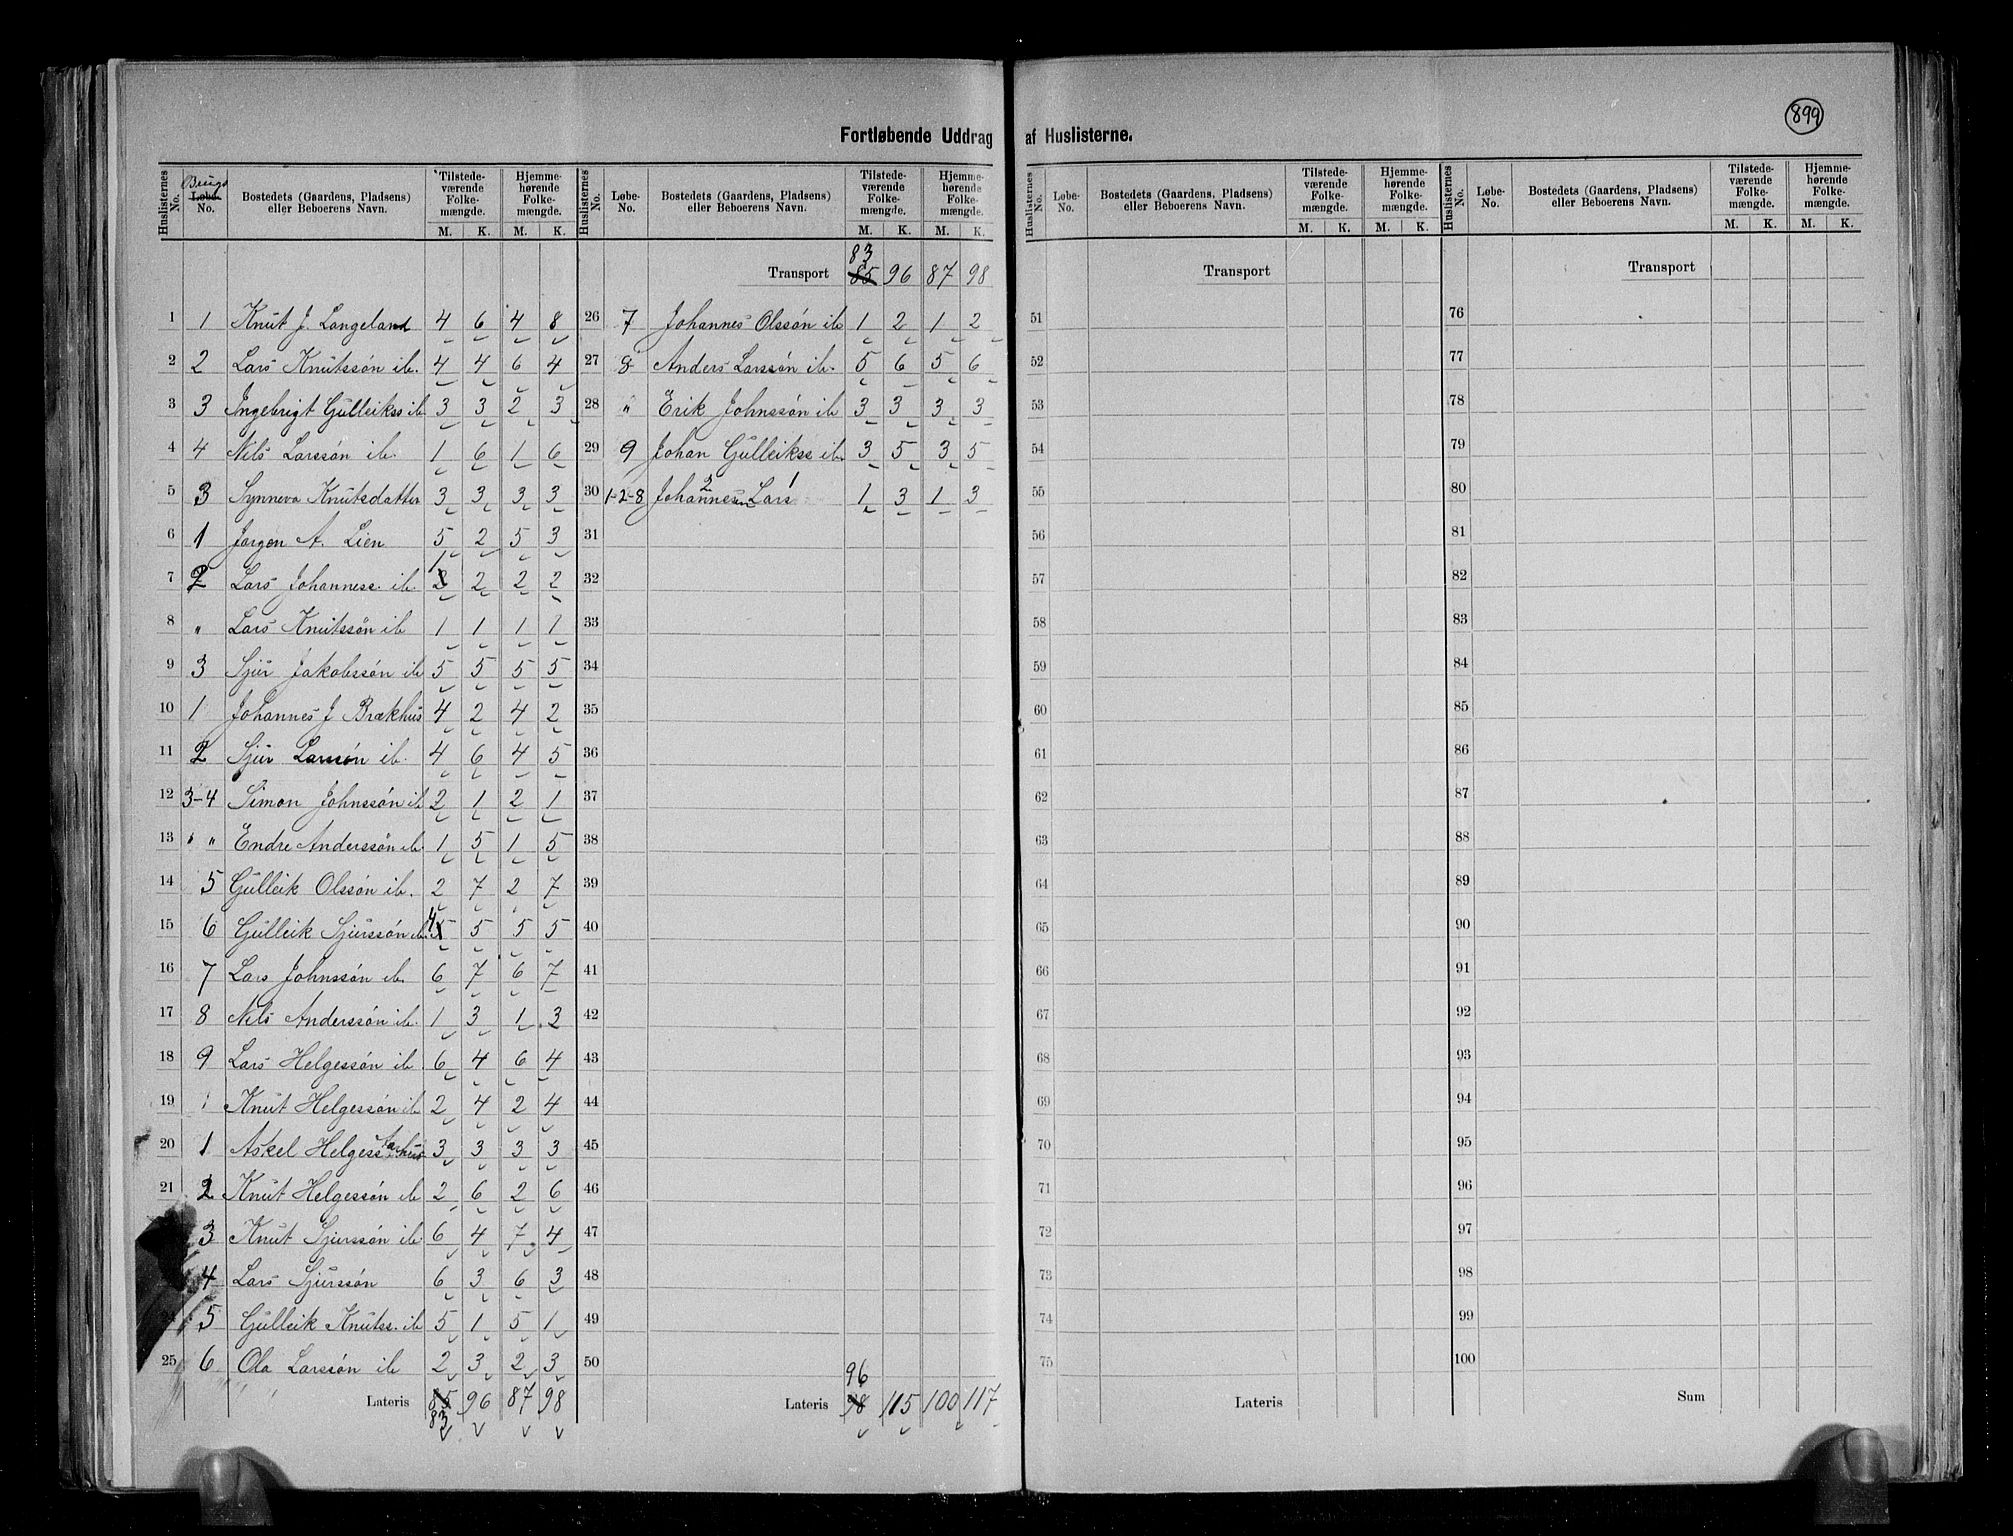 899
Fortløbende Uddrag af Huslisterne.
Huslisternes No. Brugs Løbe- No. Bostedets (Gaardens, Pladsens) eller Beboerens Navn. Tilstede-værende Folke-mængde. M. K. Hjemme-hørende Folke-mængde. M. K.
1 1 Knut J. Langeland 4 6 4 8
2 2 Lars Knutssøn ib. 4 4 6 4
3 3 Ingebrigt Gulleikss ib 3 3 2 3
4 4 Nils Larssøn ib. 1 6 1 6
5 3 Synneva Knutsdatter 3 3 3 3
6 1 Jørgen A. Lien 5 2 5 3
7 2 Lars Johanness. ib. 2 1 2 2 2
8 " Lars Knutssøn ib 1 1 1 1
9 3 Sjur Jakobssøn ib 5 5 5 5
10 1 Johannes J Brækhus 4 2 4 2
11 2 Sjur Larssøn ib. 4 6 4 5
12 3-4 Simon Johnssøn ib 2 1 2 1
13 " " Endre Anderssøn ib. 1 5 1 5
14 5 Gulleik Olssøn ib. 2 7 2 7
15 6 Gulleik Sjurssøn ib. 5 4 5 5 5
16 7 Lars Johnssøn ib. 6 7 6 7
17 8 Nils Anderssøn ib. 1 3 1 3
18 9 Lars Helgessøn ib. 6 4 6 4
19 Knut Helgessøn ib 2 4 2 4
20 1 Askel Helgess 3 3 3 3
21 2 Knut Helgessøn ib 2 6 2 6
3 Knut Sjurssøn ib. 6 4 7 4
4 Lars Sjurssøn 6 3 6 3
5 Gulleik Knutss. ib 5 1 5 1
25 6 Ola Larssøn ib 2 3 2 3
Lateris 85 96 87 98
83
Huslisternes No. Løbe-No. Bostedets (Gaardens, Pladsens) eller Beboerens Navn. Tilstede-værende Folke-mængde. M. K. Hjemme-hørende Folke-mængde. M. K.
83
Transport 85 96 87 98
26 7 Johannes Olssøn ib 1 2 1 2
27 8 Anders Larssøn ib. 5 6 5 6
28 " Erik Johnssøn ib 3 3 3 3
29 9 Johan Gulleikss ib. 3 5 3 5
30 1-2-8 Johannesen 2 Lars 1 1 3 1 3
31
32
33
34
35
36
37
38
39
40
41
42
43
44
45
46
47
48
49
50
96
Lateris 98 115 100 117
Huslisternes No. Løbe-No. Bostedets (Gaardens, Pladsens) eller Beboerens Navn. Tilstede-værende Folke-mængde. M. K. Hjemme-hørende Folke-mængde. M. K.
Transport
51
52
53
54
55
56
57
58
59
60
61
62
63
64
65
66
67
68
69
70
71
72
73
74
75
Lateris
Huslisternes No. Løbe-No. Bostedets (Gaardens, Pladsens) eller Beboerens Navn. Tilstede-værende Folke-mængde. M. K. Hjemme-hørende Folke-mængde. M. K.
Transport
76
77
78
79
80
81
82
83
84
85
86
87
88
89
90
91
92
93
94
95
96
97
98
99
100
Sum